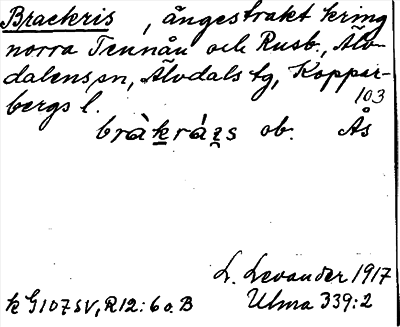 Brackris, ångestrakt kring
norra Tennån och Rusb., Älv-
dalens sn, Älvdals tg, Koppar-
bergs l.
103
bràkráɀs ob. Ås
L. Levander 1917
k G107SV, R12:6o.B
Ulma 339:2